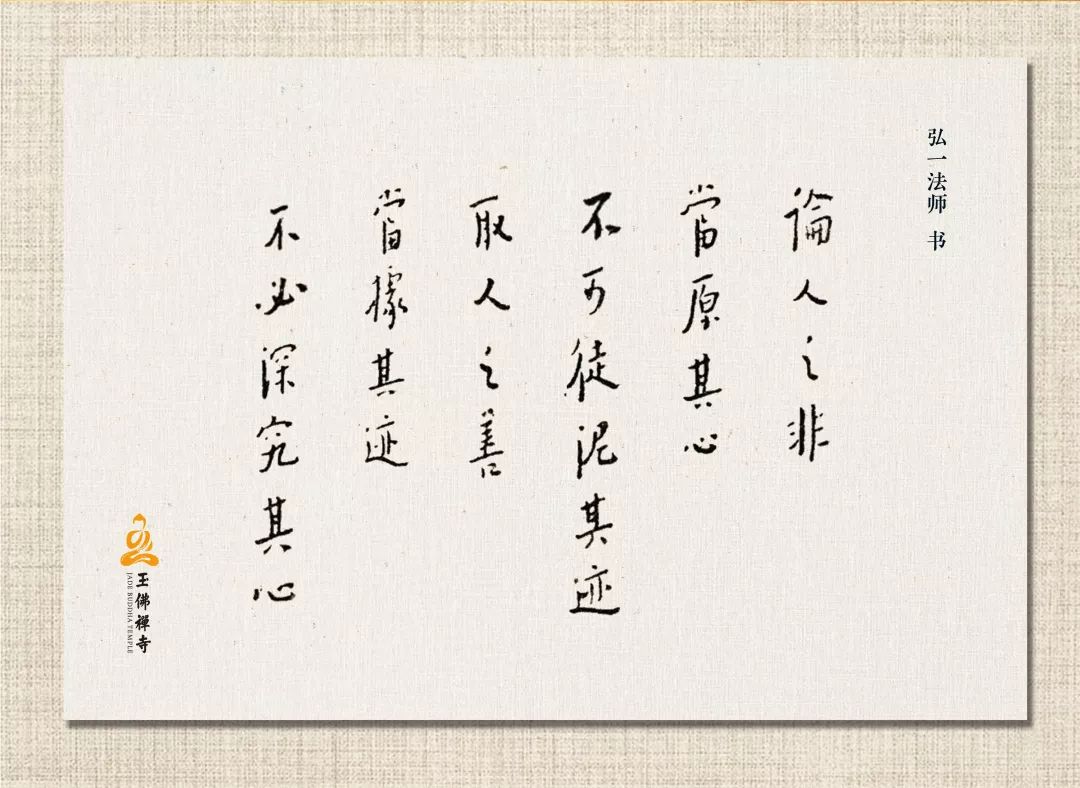 弘一法师 书
論人之非
當原其心
不可徒泥其迹
取人之善
當據其迹
不必深究其心
玉佛禅寺
JADE BUDDHA TEMPLE